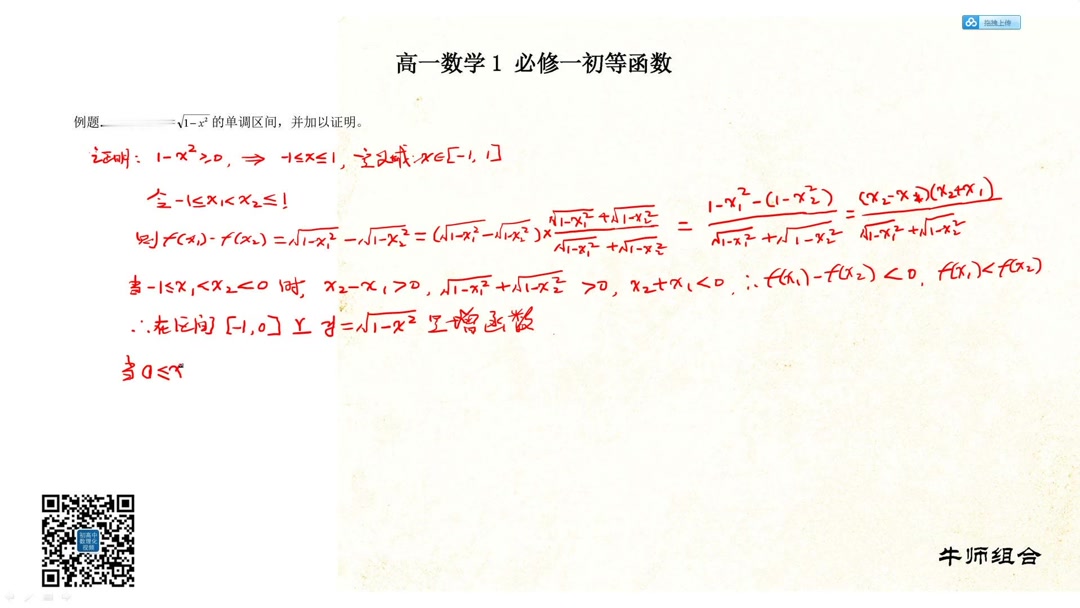 拖拽上传
高一数学1 必修一初等函数
例题. √(1-x²) 的单调区间，并加以证明。
证明: 1-x²≥0, ⇒ -1≤x≤1, 定义域: x∈[-1, 1]
令 -1≤x₁<x₂≤1
则 f(x₁)-f(x₂)=√(1-x₁²)-√(1-x₂²)=(√(1-x₁²)-√(1-x₂²))×(√(1-x₁²)+√(1-x₂²))/(√(1-x₁²)+√(1-x₂²)) = (1-x₁²-(1-x₂²))/(√(1-x₁²)+√(1-x₂²)) = (x₂-x₁)(x₂+x₁)/(√(1-x₁²)+√(1-x₂²))
当 -1≤x₁<x₂<0 时, x₂-x₁>0, √(1-x₁²)+√(1-x₂²) >0, x₂+x₁<0, ∴ f(x₁)-f(x₂)<0, f(x₁)<f(x₂)
∴在区间 [-1,0] 上 y=√(1-x²) 是增函数
当 0≤x
初高中
数理化
视频
牛师组合